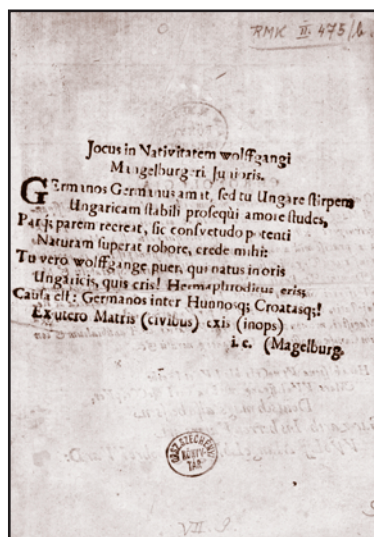 RMK II. 475/b.
Jocus in Nativitatem wolffgangi
Magelburgeri Junioris.
GErmanos Germanus amat, sed tu Ungare stirpem
Ungaricam stabili prosequi amore studes,
Par parem recreat, sic consvetudo potenti
Naturam superat robore, crede mihi:
Tu vero wolffgange puer, qui natus in oris
Ungaricis, quis eris? Hermaphroditus eris;
Causa est: Germanos inter Hunnosq; Croatasq;!
Ex utero Matris (civibus) exis (inops)
i. e. (Magelburg.
ORSZ. SZÉCHÉNYI
KÖNYV-
TÁR